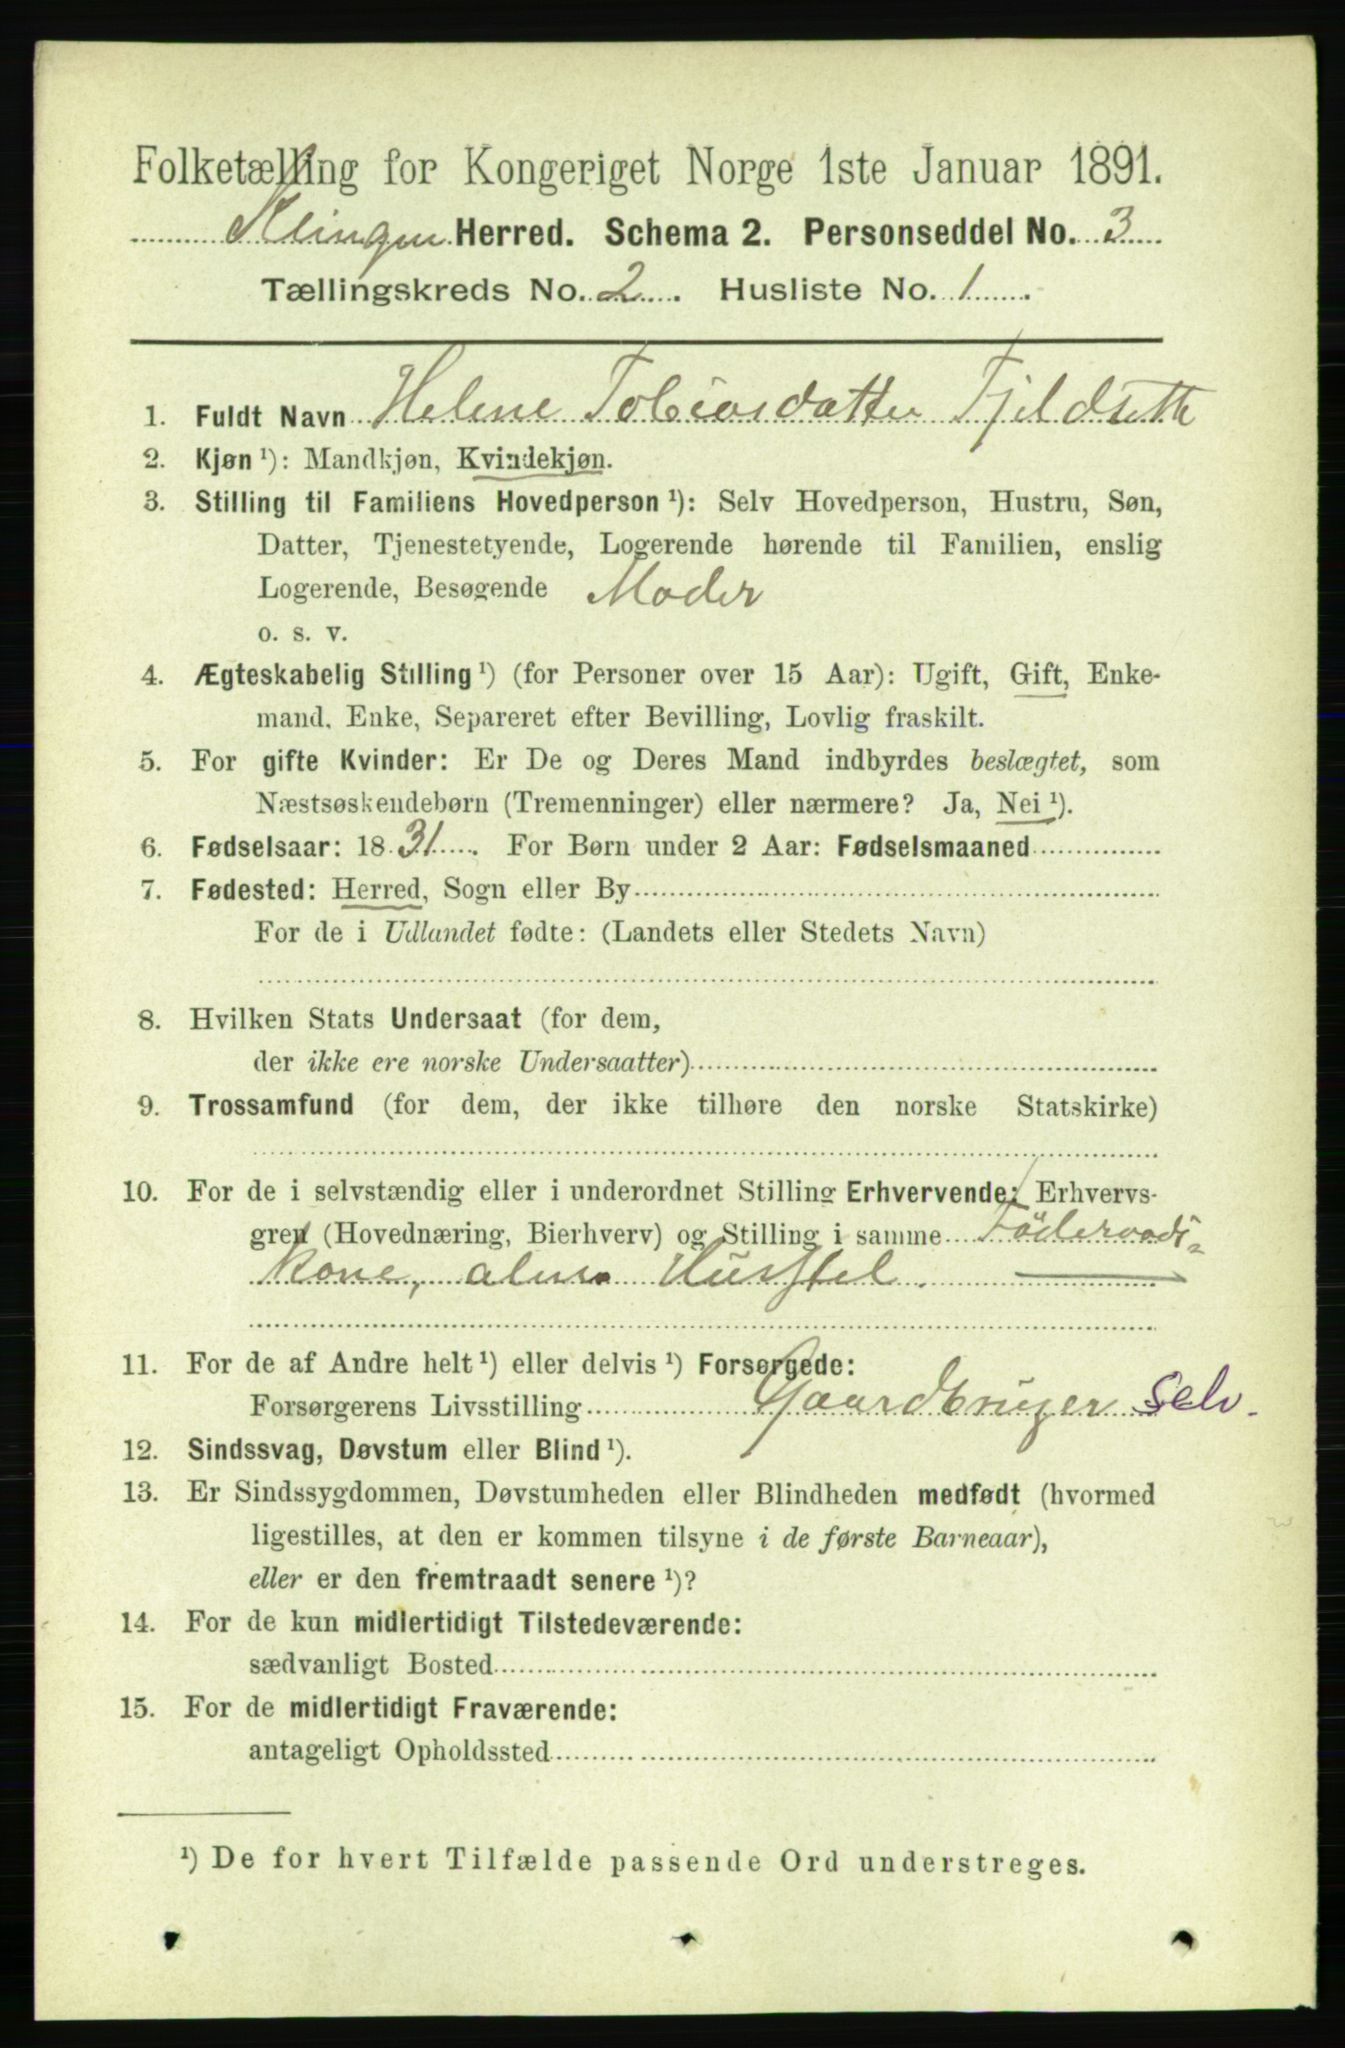 Folketælling for Kongeriget Norge 1ste Januar 1891.
Klingen Herred. Schema 2. Personseddel No. 3
Tællingskreds No. 2. Husliste No. 1.
1. Fuldt Navn Helene Tobiasdatter Fjeldseth
2. Kjøn ¹): Mandkjøn, Kvindekjøn.
3. Stilling til Familiens Hovedperson ¹): Selv Hovedperson, Hustru, Søn,
Datter, Tjenestetyende, Logerende hørende til Familien, enslig
Logerende, Besøgende Moder
o. s. v.
4. Ægteskabelig Stilling ¹) (for Personer over 15 Aar): Ugift, Gift, Enke-
mand, Enke, Separeret efter Bevilling, Lovlig fraskilt.
5. For gifte Kvinder: Er De og Deres Mand indbyrdes beslægtet, som
Næstsøskendebørn (Tremenninger) eller nærmere? Ja, Nei ¹).
6. Fødselsaar: 1831. For Børn under 2 Aar: Fødselsmaaned
7. Fødested: Herred, Sogn eller By
For de i Udlandet fødte: (Landets eller Stedets Navn)
8. Hvilken Stats Undersaat (for dem,
der ikke ere norske Undersaatter)
9. Trossamfund (for dem, der ikke tilhøre den norske Statskirke)
10. For de i selvstændig eller i underordnet Stilling Erhvervende: Erhvervs-
gren (Hovednæring, Bierhverv) og Stilling i samme Föderaads-
kone, alm. Husstel.
11. For de af Andre helt ¹) eller delvis ¹) Forsørgede:
Forsørgerens Livsstilling Gaardbruger Selv.
12. Sindssvag, Døvstum eller Blind ¹).
13. Er Sindssygdommen, Døvstumheden eller Blindheden medfødt (hvormed
ligestilles, at den er kommen tilsyne i de første Barneaar),
eller er den fremtraadt senere ¹)?
14. For de kun midlertidigt Tilstedeværende:
sædvanligt Bosted
15. For de midlertidigt Fraværende:
antageligt Opholdssted
¹) De for hvert Tilfælde passende Ord understreges.